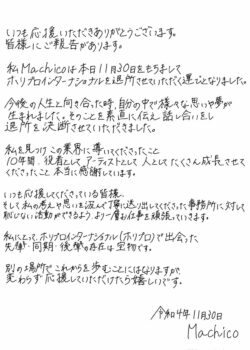 いつも応援いただきありがとうございます。
皆様にご報告があります。
私Machicoは本日11月30日をもちまして
ホリプロインターナショナルを退所させていただく運びとなりました。
今後の人生と向き合った時、自分の中で様々な思いや夢が
生まれました。そのことを素直に伝え、話し合いをし
退所を決断させていただきました。
私を見つけこの業界に導いてくださったこと
10年間、役者としてアーティストとして人としてたくさん成長させて
くださったこと本当に感謝しています。
いつも応援してくださっている皆様、
そして私の考えや思いを汲んで丁寧に送り出してくださった事務所に対して
恥じない活動ができるよう、より一層お仕事を頑張っていきます。
私にとって、ホリプロインターナショナル(ホリプロ)で出会った
先輩・同期・後輩の存在は宝物です。
別の場所でこれから歩むことにはなりますが、
変わらず応援していただけたら嬉しいです。
令和4年11月30日
Machico